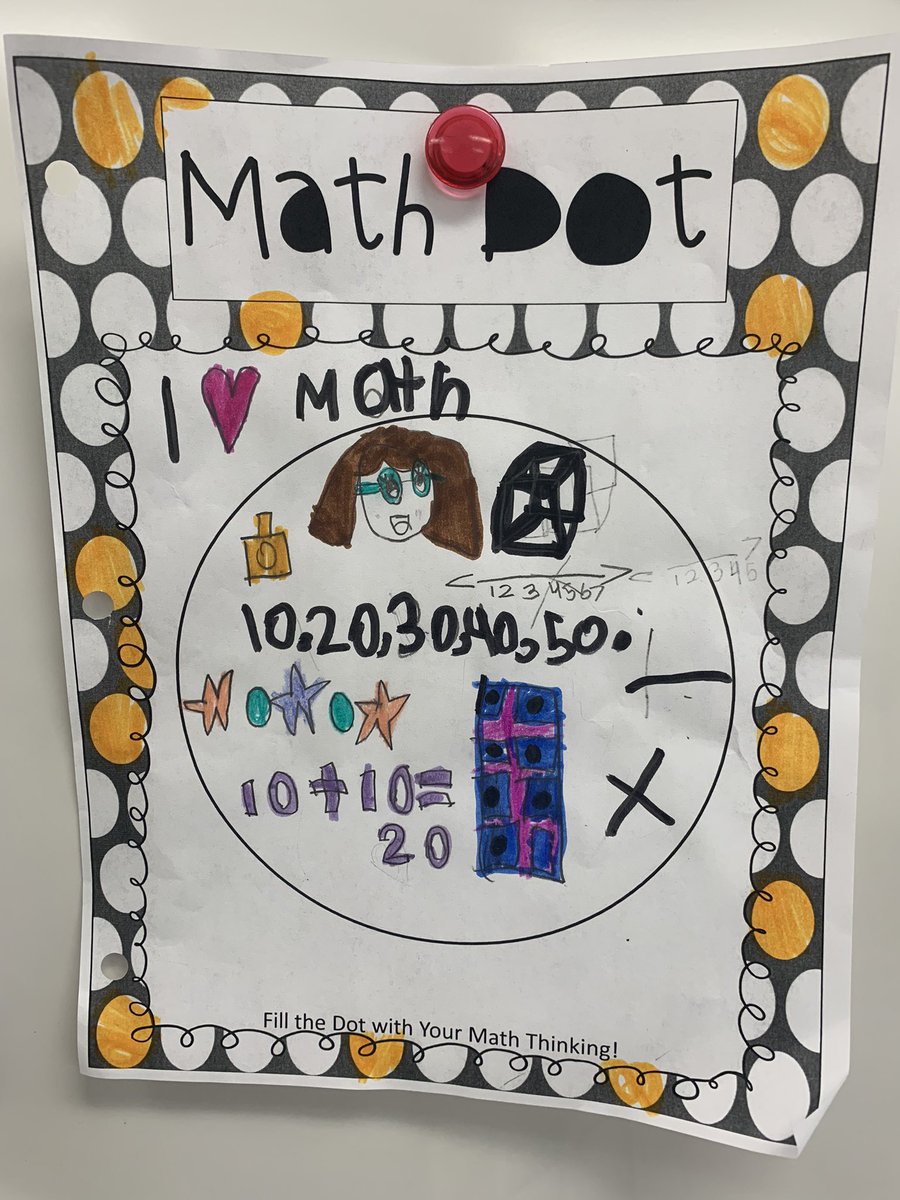 Math Dot
I ♥ Math
1 2 3 4 5 6 7
1 2 3 4 5
10.20,30,40,50.
10+10=
20
Fill the Dot with Your Math Thinking!